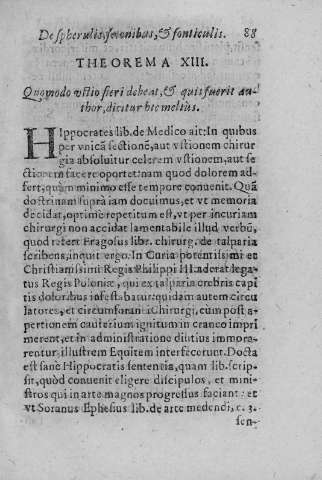 De spherulis, seuonibus, & fonticulis. 88
THEOREMA XIII.
Quomodo vstio fieri debeat, & quis fuerit au-
thor, dicitur hic melius.
HIppocrates lib. de Medico ait: In quibus
per vnicã sectionẽ, aut vstionem chirur
gia absoluitur celerem vstionem, aut se
ctionem facere oportet: nam quod dolorem ad-
fert, quàm minimo esse tempore conuenit. Quã
doctrinam suprà iam docuimus, et vt memoria
decidat, optimè repetitum est, vt per incuriam
chirurgi non accidat lamentabile illud verbũ,
quod refert Fragosus libr. chirurg. de talparia
scribens, inquit ergo. In Curia potentissimi et
Christianissimi Regis Philippi II. aderat lega-
tus Regis Poloniæ, qui ex talparia crebris capi
tis doloribus infestabatur: quidam autem circu
latores, et circumforanei Chirurgi, cum post a-
pertionem cauterium ignitum in craneo impri
merent, et in administratione diutius immora-
rentur, illustrem Equitem interfecerunt. Docta
est sanè Hippocratis sententia, quam lib. scrip-
sit, quòd conuenit eligere discipulos, et mini-
stros qui in arte magnos progressus faciant: et
vt Soranus Ephesius lib. de arte medendi, c. 3.
sen-